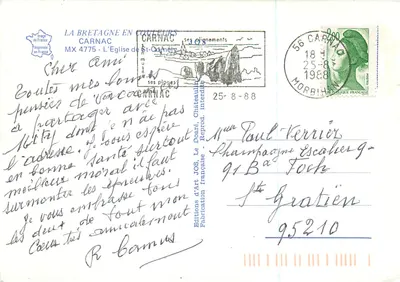 LA BRETAGNE EN COULEURS
CARNAC
MX 4775 - L'Eglise de St-Cornély
Cher Ami
Toutes mes bonnes
pensées de vacances
à partager avec
Kity dont je n'ai pas
l'adresse. Je vous espère
en bonne santé surtout
meilleur moral il faut
surmonter les épreuves.
Je vous embrasse tous
les deux de tout mon
Cœur très amicalement
R
CARNAC
ses alignements
ses plages
CARNAC
25-8-88
56 CARNAC
18 H
25-8
1988
MORBIHAN
2,20
Editions d'Art JOS, Le Doaré, Châteaulin
Fabrication française - Reprod. interdite
Paul Verrier
Champagne Escalier 9
91 Bd Foch
St Gratien
95210